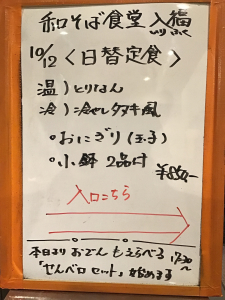 和そば食堂 入福
いりふく
10/12 <日替定食>
温)とりなん
冷)冷やしタヌキ風
・おにぎり(玉子)
・小鉢 2品付
¥850-
入口こちら
本日より おでん もえらべる
「せんべロセット」始めます 17:30〜